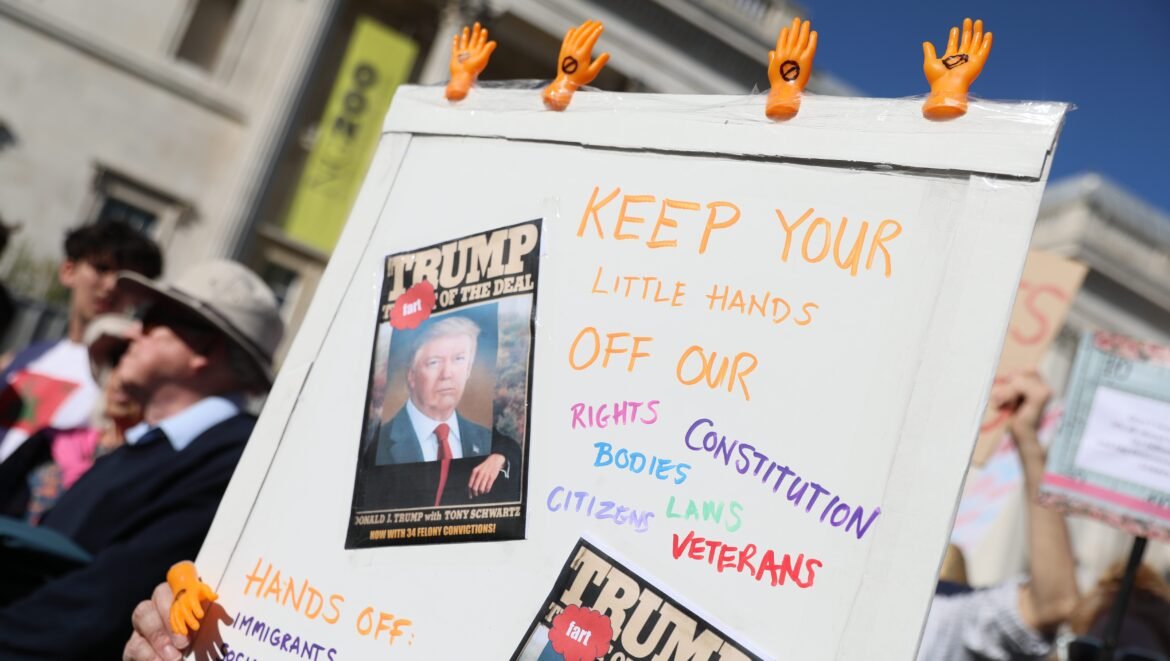 NG200
KEEP YOUR
LITTLE HANDS
OFF OUR
RIGHTS
CONSTITUTION
BODIES
CITIZENS
LAWS
VETERANS
TRUMP
fart
OF THE DEAL
DONALD J. TRUMP with TONY SCHWARTZ
NOW WITH 34 FELONY CONVICTIONS!
HANDS OFF:
IMMIGRANTS
TRUMP
fart
OF THE